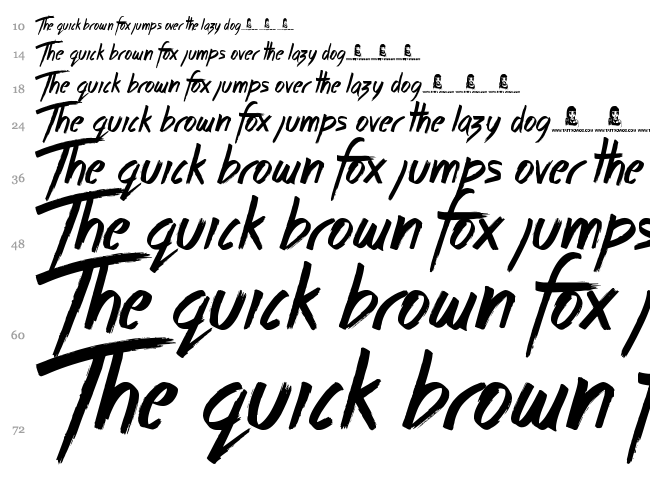 10 The quick brown fox jumps over the lazy dog
14 The quick brown fox jumps over the lazy dog
18 The quick brown fox jumps over the lazy dog
24 The quick brown fox jumps over the lazy dog WWW.TATTOOWOO.COM WWW.TATTOOWOO.COM
36 The quick brown fox jumps over the
48 The quick brown fox jumps
60 The quick brown fox
72 The quick brown